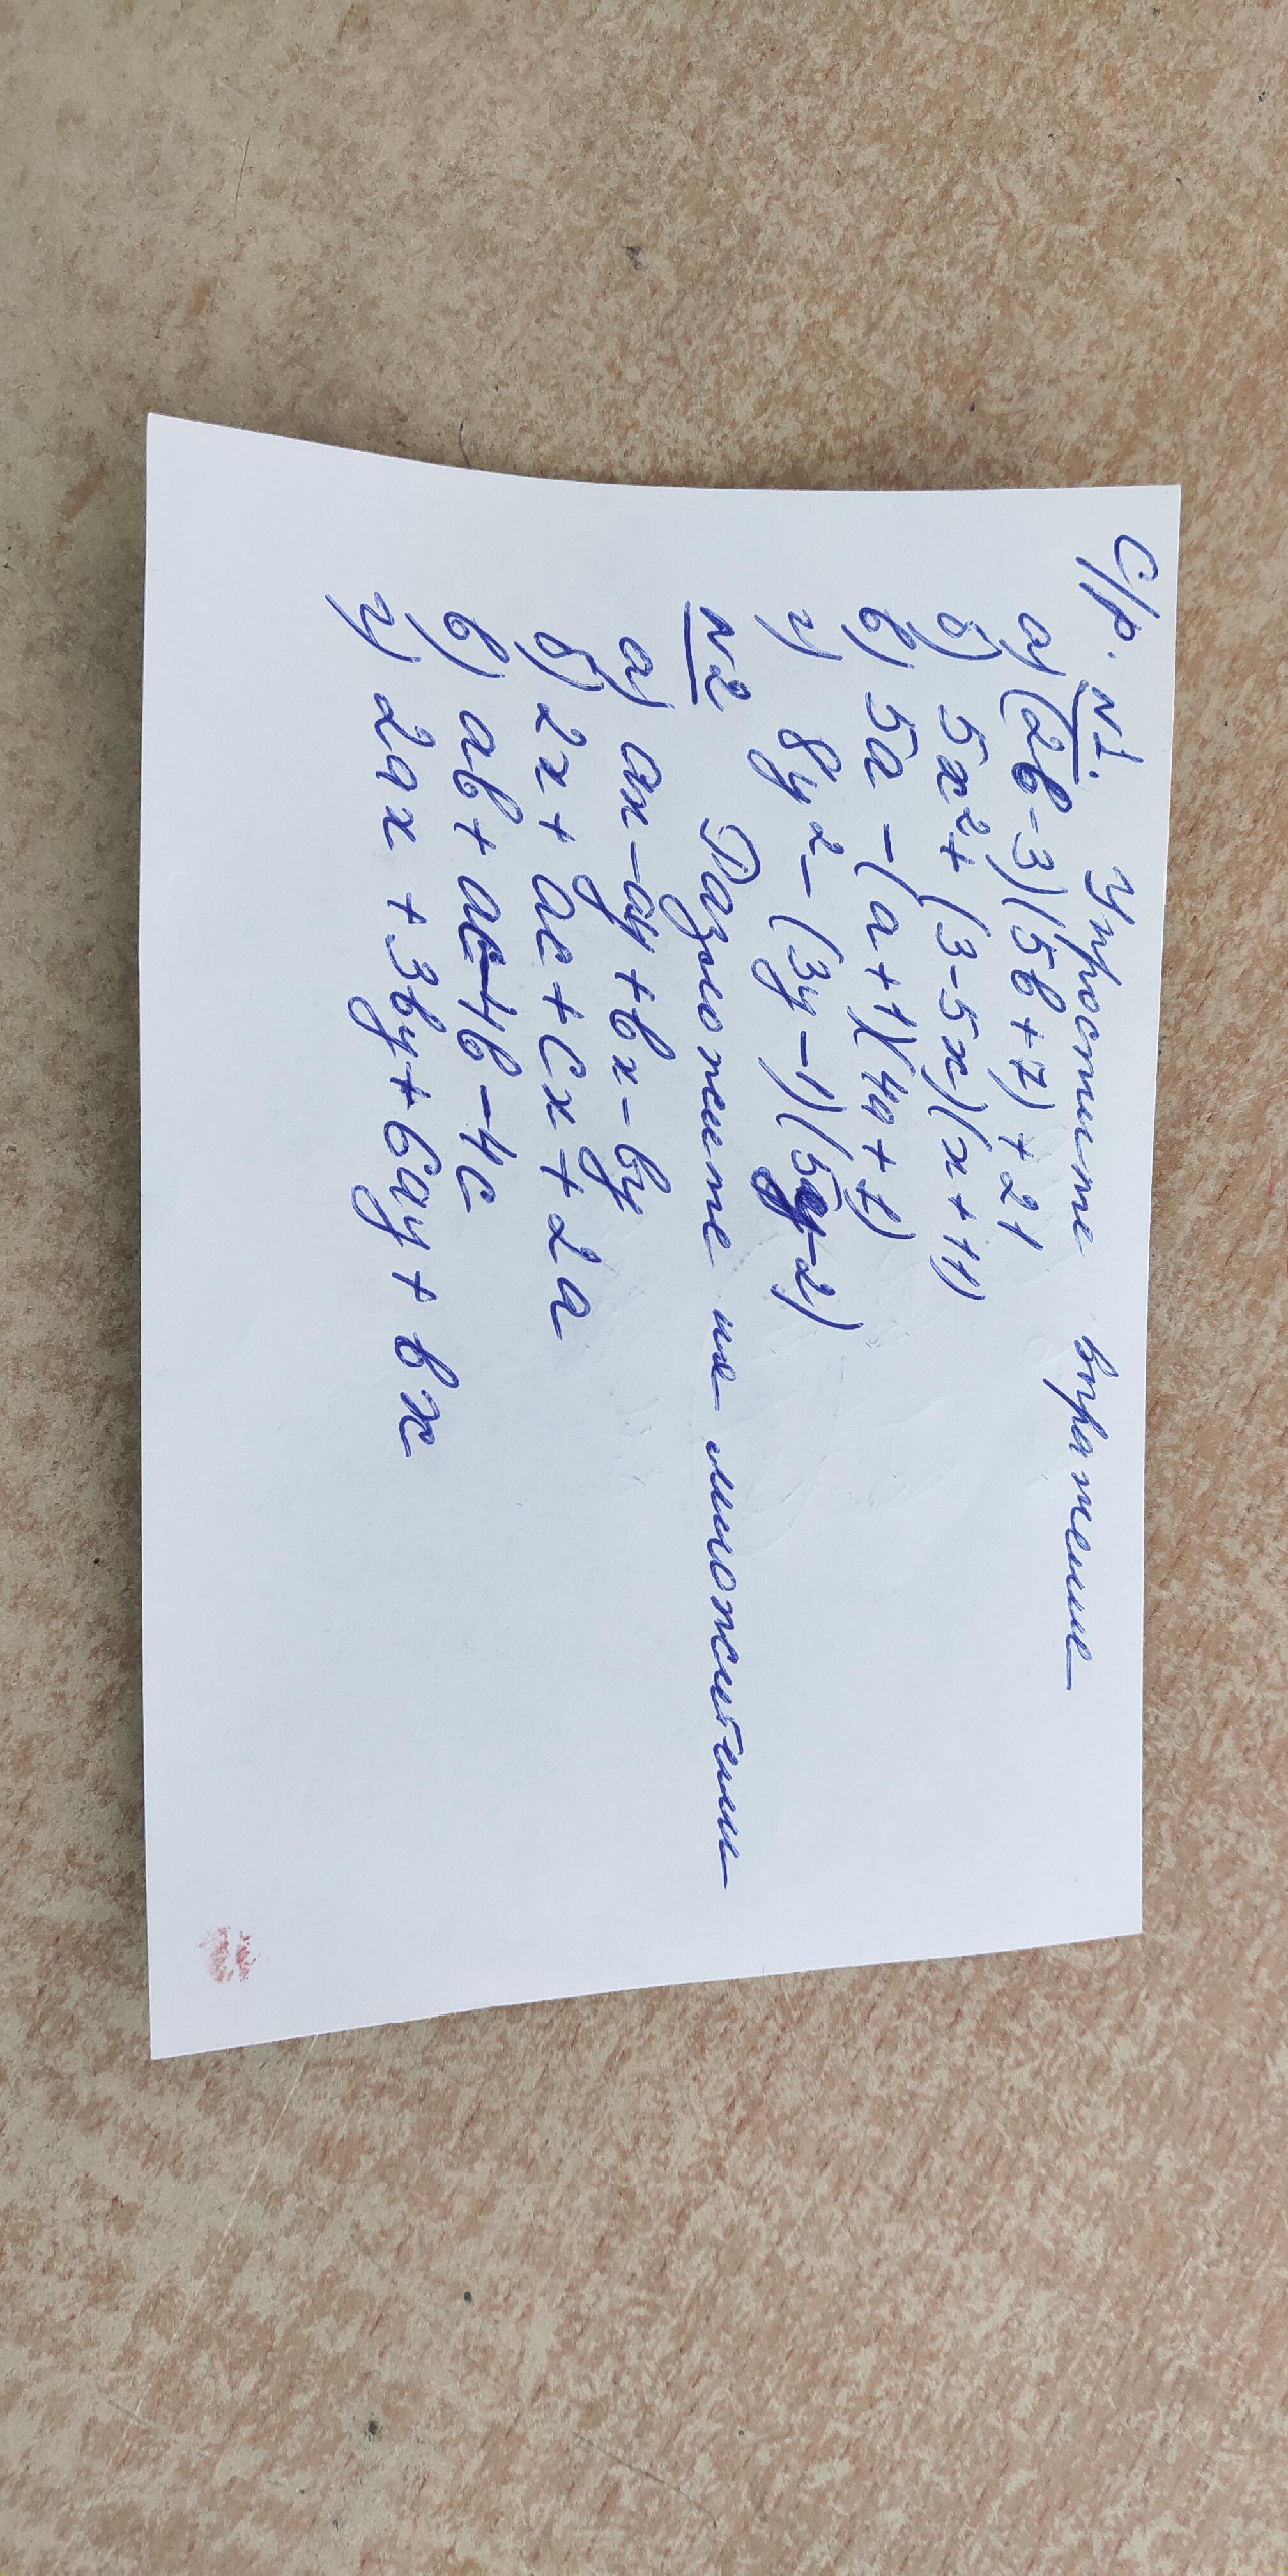 С/р. №1. Упростите выражение
а) (2в-3)(5в+7)+21
б) 5x²+(3-5x)(x+11)
в) 5a-(a+1)(4a+1)
г) 8y²-(3y-1)(5y-2)
№2 Разложите на множители
а) ax-ay+вx-вy
б) 2x+ac+cx+2a
в) aв+ac-4в-4c
г) 2ax+3вy+6ay+вx